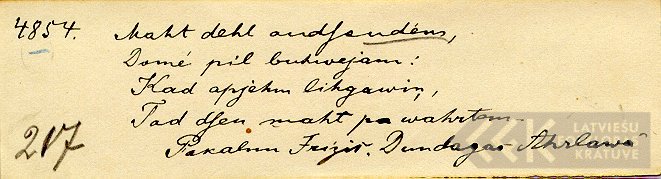 4854. Maht dehl audsendém,
Domé pil buhwejam:
Kad apjehm lihgawiņ,
Tad dsen maht pa wahrtem.
217
Pakalnn Frizis. Dundagas Ahrlawā
LATVIEŠU
KRATUVE